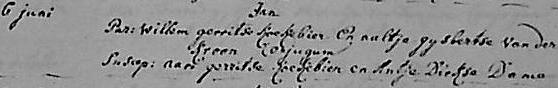 6 juni Jan
Par: Willem gerritse koekebier En aaltje gysbertse van den
Kroon Conjugum
Suscep: nari gerritse koekebier en Antje Dirkse Dame